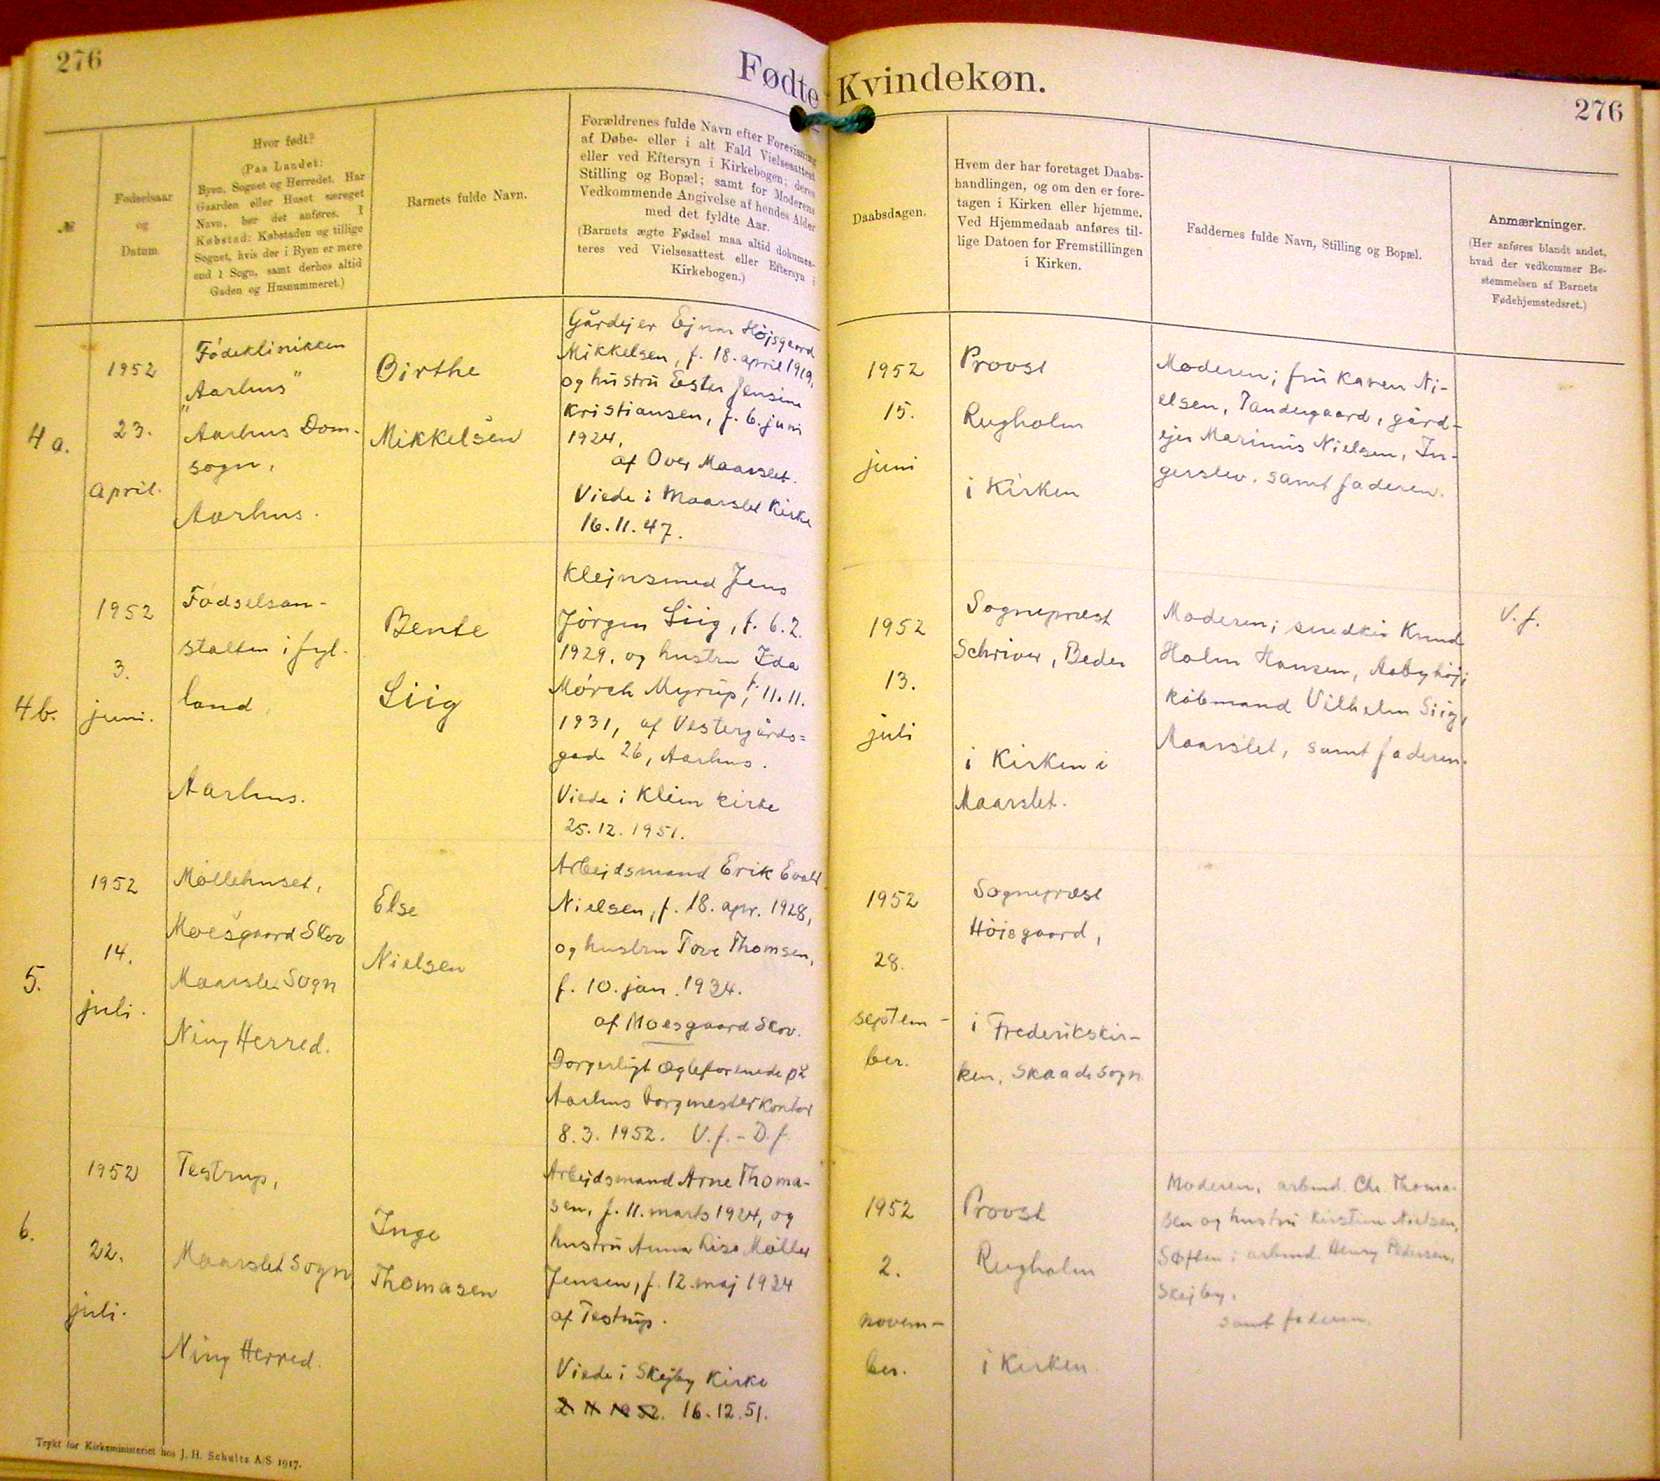 276
Fødte Kvindekøn.
276
№
Fødselsaar
og
Datum
Hvor født?
(Paa Landet:
Byen, Sognet og Herredet. Har
Gaarden eller Huset særeget
Navn, bør det anføres. I
Købstad: Købstaden og tillige
Sognet, hvis der i Byen er mere
end 1 Sogn, samt derhos altid
Gaden og Husnummeret.)
Barnets fulde Navn.
Forældrenes fulde Navn efter Forevisning
af Døbe- eller i alt Fald Vielsesattest
eller ved Eftersyn i Kirkebogen; deres
Stilling og Bopæl; samt for Moderens
Vedkommende Angivelse af hendes Alder
med det fyldte Aar.
(Barnets ægte Fødsel maa altid dokumen-
teres ved Vielsesattest eller Eftersyn i
Kirkebogen.)
Daabsdagen.
Hvem der har foretaget Daabs-
handlingen, og om den er fore-
tagen i Kirken eller hjemme.
Ved Hjemmedaab anføres til-
lige Datoen for Fremstillingen
i Kirken.
Faddernes fulde Navn, Stilling og Bopæl.
Anmærkninger.
(Her anføres blandt andet,
hvad der vedkommer Be-
stemmelsen af Barnets
Fødehjemstedsret.)
4a.
1952
23.
april.
Fødeklinikken
"Aarhus"
Aarhus Dom-
sogn,
Aarhus.
Birthe
Mikkelsen
Gårdejer Ejnar Højsgaard
Mikkelsen, f. 18. april 1919,
og hustru Ester Jensine
Kristiansen, f. 6. juni
1924,
af Over Maarslet.
Viede i Maarslet Kirke
16.11.47.
1952
15.
juni
Provst
Rugholm
i Kirken
Moderen; fru Karen Ni-
elsen, Tandergaard, gård-
ejer Marinus Nielsen, In-
gerslev. samt faderen.
4b.
1952
3.
juni.
Fødselsan-
stalten i Jyl-
land,
Aarhus.
Bente
Siig
Klejnsmed Jens
Jörgen Siig, f. 6.2.
1929, og hustru Ida
Mörch Myrup, f. 11.11.
1931, af Vestergårds=
gade 26, Aarhus.
Viede i Klim kirke
25.12.1951.
1952
13.
juli
Sognepræst
Schriver, Beder
i Kirken i
Maarslet.
Moderen; snedker Knud
Holm Hansen, Aabyhøj;
købmand Vilhelm Siig,
Maarslet, samt faderen.
V.f.
5.
1952
14.
juli.
Møllehuset,
Moesgaard Skov
Maarslet Sogn
Ning Herred.
Else
Nielsen
Arbejdsmand Erik Evald
Nielsen, f. 18. apr. 1928,
og hustru Tove Thomsen,
f. 10. jan. 1934.
af Moesgaard Skov.
Borgerligt ægteforenede på
Aarhus borgmesterkontor
8.3.1952. V.f. - D.f.
1952
28.
septem-
ber.
Sognepræst
Höisgaard,
i Frederikskir-
ken, Skaade sogn
6.
1952
22.
juli.
Testrup,
Maarslet Sogn
Ning Herred.
Inge
Thomasen
Arbejdsmand Arne Thoma-
sen, f. 11. marts 1924, og
hustru Anna Lise Møller
Jensen, f. 12. maj 1924
af Testrup.
Viede i Skejby Kirke
16.12.51.
1952
2.
novem-
ber.
Provst
Rugholm
i Kirken.
Moderen, arbmd. Chr. Thoma-
sen og hustru Kirstine Nielsen,
Søften; arbmd. Henry Pedersen,
Skejby,
samt faderen.
Trykt for Kirkeministeriet hos J. H. Schultz A/S 1917.